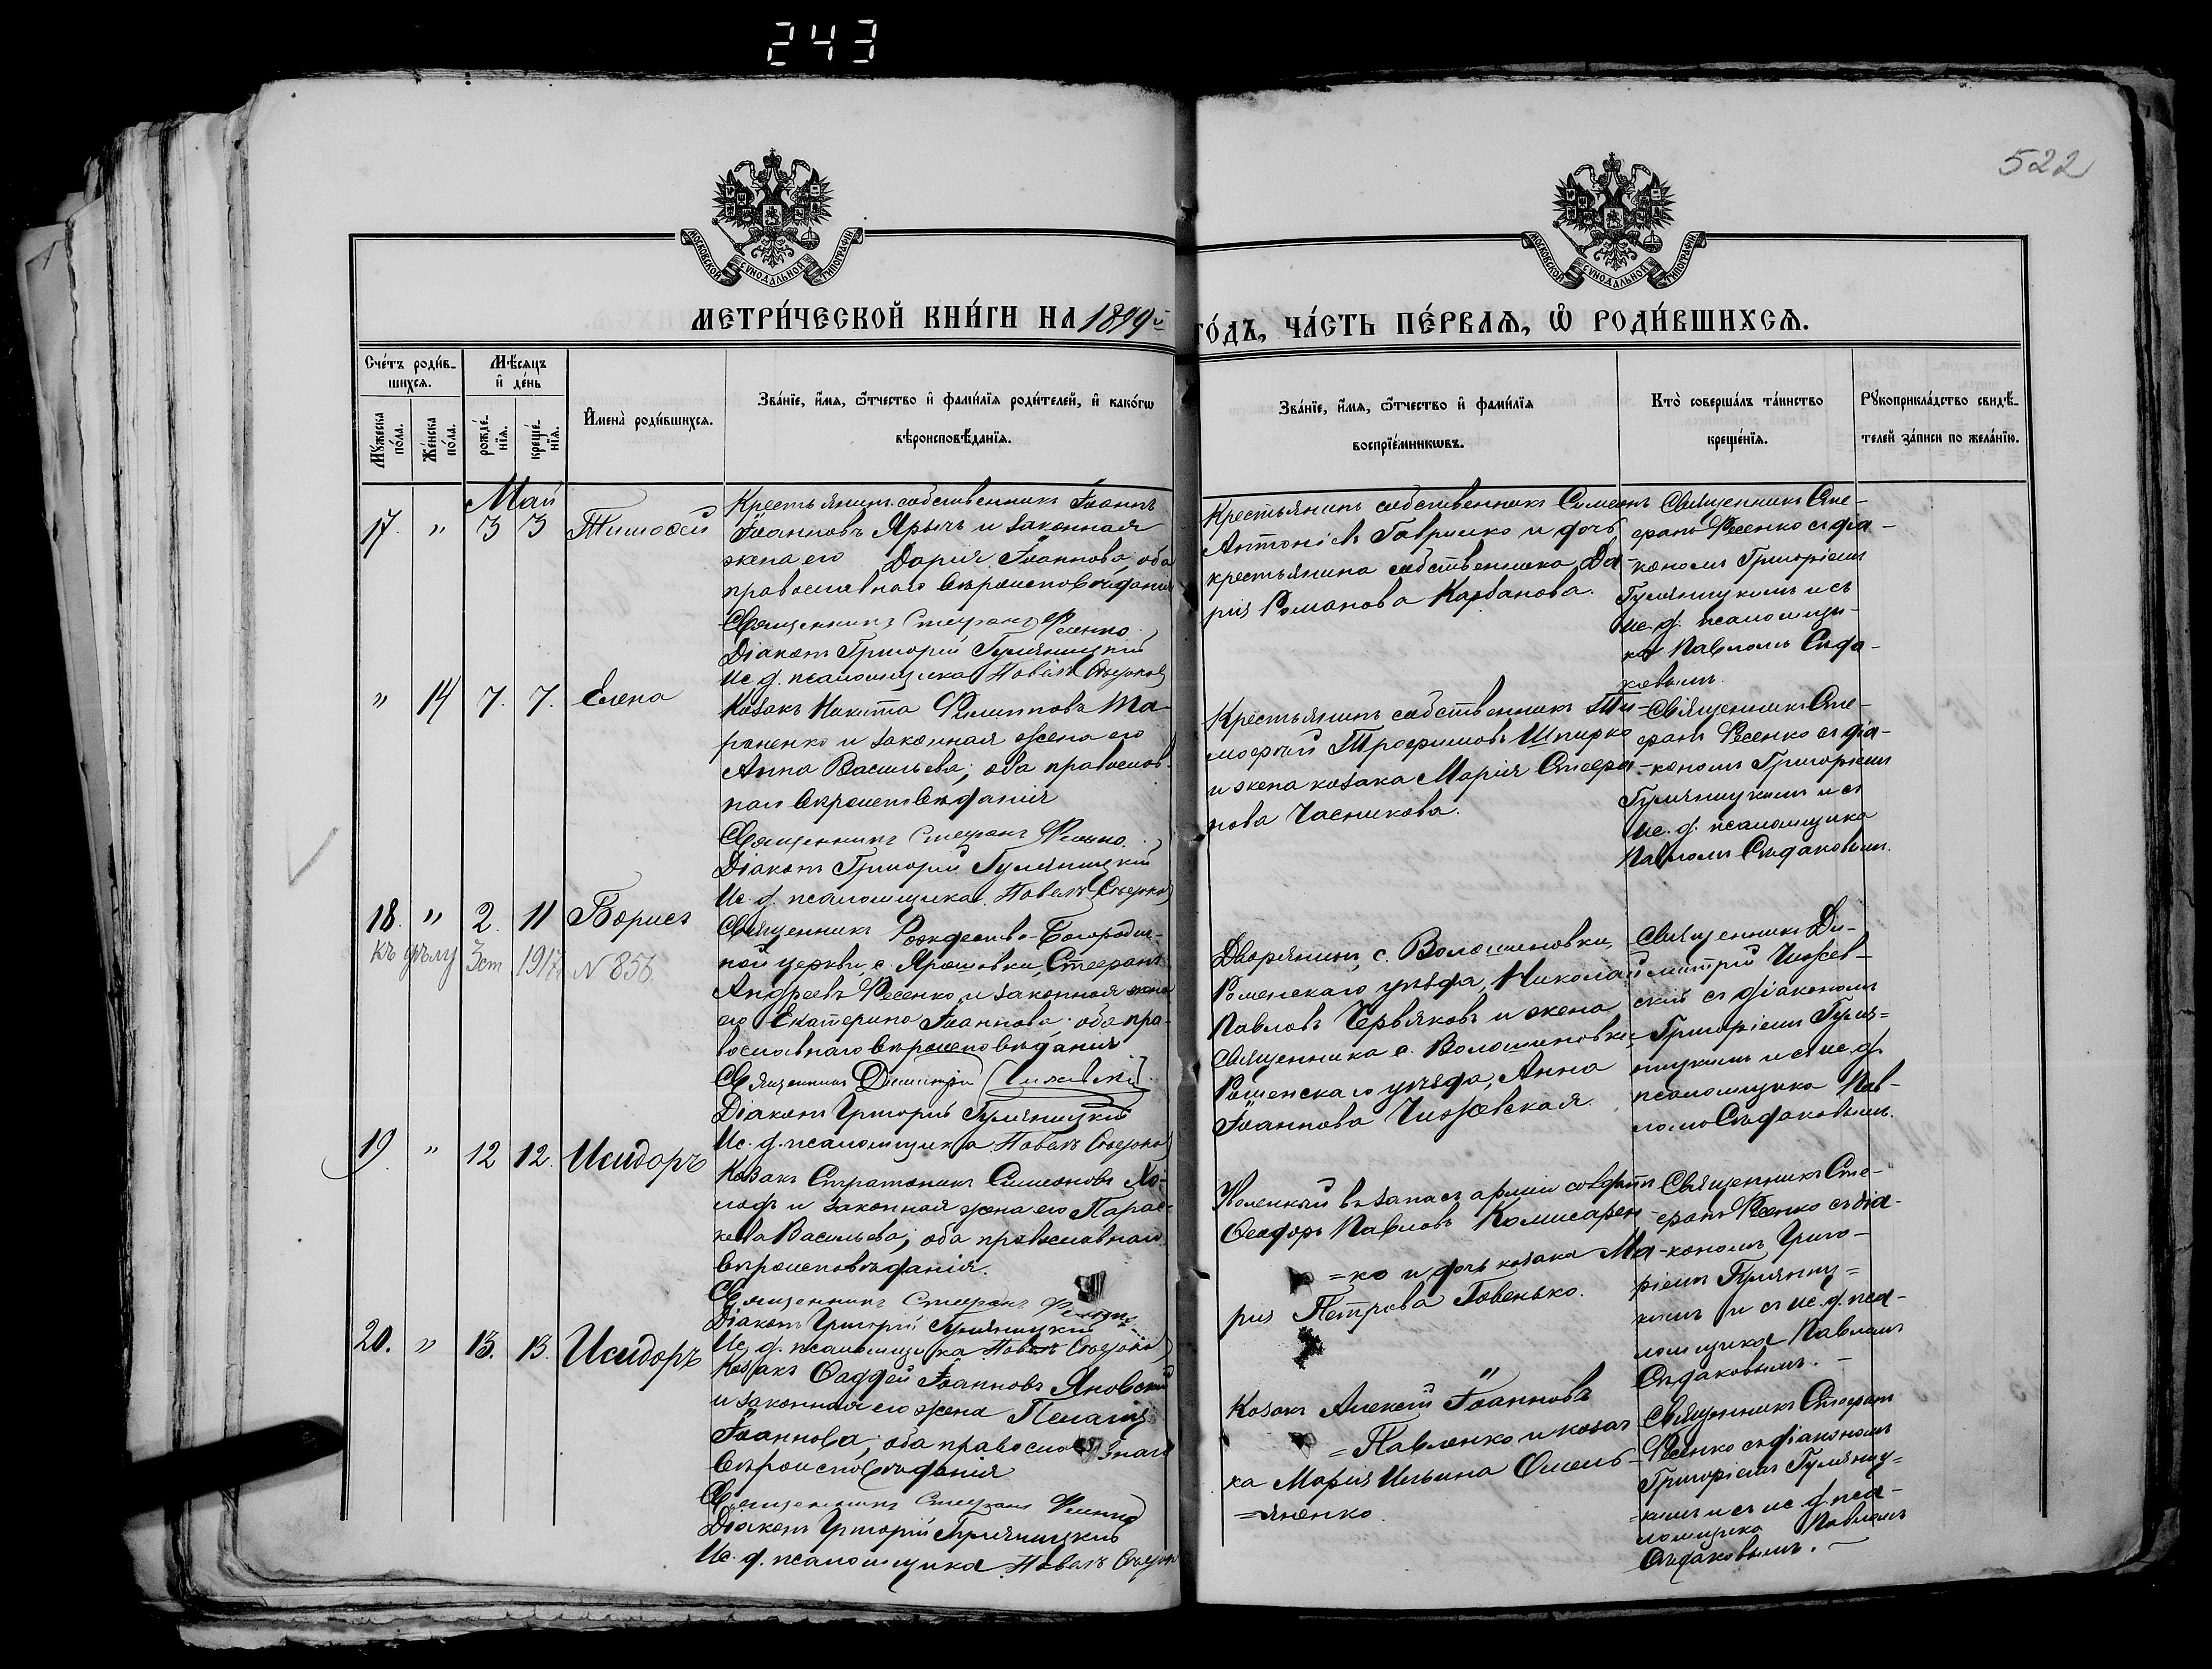 243
522
МОСКОВСКОЙ СѴНОДАЛЬНОЙ ТИПОГРАФІИ
МОСКОВСКОЙ СѴНОДАЛЬНОЙ ТИПОГРАФІИ
МЕТРИ́ЧЕСКОЙ КНИ́ГИ НА 1899й
ГО́ДЪ, ЧА́СТЬ ПЕ́РВАѦ, Ѡ҆ РОДИ́ВШИХСѦ.
Сче́тъ роди́в-
шихсѧ.
Мꙋ́жеска по́ла.
Же́нска по́ла.
Мѣ́сѧцъ
и҆ де́нь
рожде́-
нїѧ.
креще́-
нїѧ.
И҆мена̀ роди́вшихсѧ.
Зва́нїе, и҆́мѧ, ѻ҆́тчество и҆ фамі́лїѧ роди́телей, и҆ како́гѡ
вѣроисповѣ́данїѧ.
Зва́нїе, и҆́мѧ, ѻ҆́тчество и҆ фамі́лїѧ
воспрїе́мникѡвъ.
Кто̀ соверша́лъ та́инство
креще́нїѧ.
Рꙋкоприкла́дство свидѣ́-
телей за́писи по жела́нїю.
Май
17. " 3 3 Тимофей
Крестьянинъ собственникъ Іоаннъ
Іоанновъ Ярычъ и законная
жена его Дарія Іоаннова, оба
православнаго вѣроисповѣданія
Священникъ Стефанъ Фесенко
Діаконъ Григорій Гуляницкій
Ис. д. псаломщика Павелъ Съедаковъ
Крестьянинъ собственникъ Симеонъ
Антоніевъ Гавришко и дочь
крестьянина собственника Да-
рія Романова Карбанова.
Священникъ Сте-
фанъ Фесенко съ діа-
кономъ Григоріемъ
Гуляницкимъ и съ
ис. д. псаломщи-
ка Павломъ Съеда-
ковымъ.
" 14 7. 7. Елена
Козакъ Никита Филипповъ Та-
раненко и законная жена его
Анна Васильева; оба православ-
наго вѣроисповѣданія
Священникъ Стефанъ Фесенко.
Діаконъ Григорій Гуляницкій
Ис. д. псаломщика Павелъ Съедаковъ
Крестьянинъ собственникъ Ти-
мофей Трофимовъ Шпирко
и жена козака Марія Стефа-
нова Часникова.
Священникъ Сте-
фанъ Фесенко съ діа-
кономъ Григоріемъ
Гуляницкимъ и съ
ис. д. псаломщика
Павломъ Съедаковымъ.
18. " 2. 11 Борисъ
къ дѣлу 3 ст 1917 N 856
Священникъ Рождество-Богородич-
ной церкви, с. Ярошовки, Стефанъ
Андреевъ Фесенко и законная жена
его Екатерина Іоаннова; оба пра-
вославнаго вѣроисповѣданія
Священникъ Димитрій Чижевскій
Діаконъ Григорій Гуляницкій
Ис. д. псаломщика Павелъ Съедаковъ
Дворянинъ, с. Волошиновки,
Роменскаго уѣзда, Николай
Павловъ Червяковъ и жена
священника с. Волошиновки,
Роменскаго уѣзда, Анна
Іоаннова Чижевская.
Священникъ Ди-
митрій Чижев-
скій съ діакономъ
Григоріемъ Гуля-
ницкимъ и съ ис. д.
псаломщика Пав-
ломъ Съедаковымъ.
19. " 12 12. Исидоръ
Козакъ Стратоникъ Симеоновъ Хо-
лодъ и законная жена его Парас-
кева Васильева; оба православнаго
вѣроисповѣданія.
Священникъ Стефанъ Фесенко
Діаконъ Григорій Гуляницкій
Ис. д. псаломщика Павелъ Съедаковъ
Уволенный въ запасъ арміи солдатъ
Феодоръ Павловъ Комисарен-
=ко и дочь козака Ма-
рія Петрова Говенько.
Священникъ Сте-
фанъ Фесенко съ діа-
кономъ Григо-
ріемъ Гуляниц=
кимъ и съ ис. д. пса-
ломщика Павломъ
Съедаковымъ. —
20. " 13. 13. Исидоръ
Козакъ Фаддей Іоанновъ Яновскій
и законная его жена Пелагія
Іоаннова; оба православнаго
вѣроисповѣданія
Священникъ Стефанъ Фесенко
Діаконъ Григорій Гуляницкій
Ис. д. псаломщика Павелъ Съедаковъ
Козакъ Алексій Іоанновъ
=Павленко и козач-
ка Марія Ильина Омель-
=яненко.
Священникъ Стефанъ
Фесенко съ діакономъ
Григоріемъ Гуляниц=
кимъ и съ ис. д. пса-
ломщика Павломъ
Съедаковымъ. —